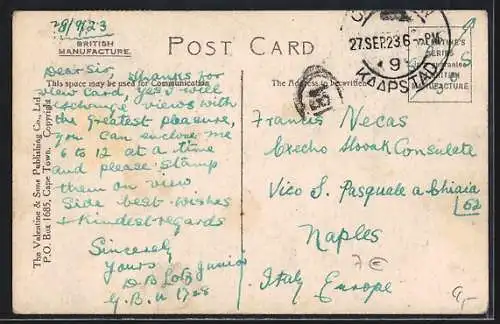 28/9/23
BRITISH
MANUFACTURE.
POST CARD
27.SEP.23 6 - PM
9
KAAPSTAD
VALENTINE'S
SERIES
BRITISH
MANUFACTURE
This space may be used for Communication.
The Address to be written
Dear Sir, Thanks for
your Card, yes I will
exchange views with
the greatest pleasure,
you can enclose me
6 to 12 at a time
and please stamp
them on view
side best wishes
+ kindest regards
Sincerely
Yours
D B Lotz Junior
G.B.U 1728
Francis Necas
Czecho Slovak Consulate
Vico S. Pasquale a Chiaia
62
Naples
Italy Europe
7€
The Valentine & Sons Publishing Co., Ltd
P.O. Box 1685, Cape Town. Copyright